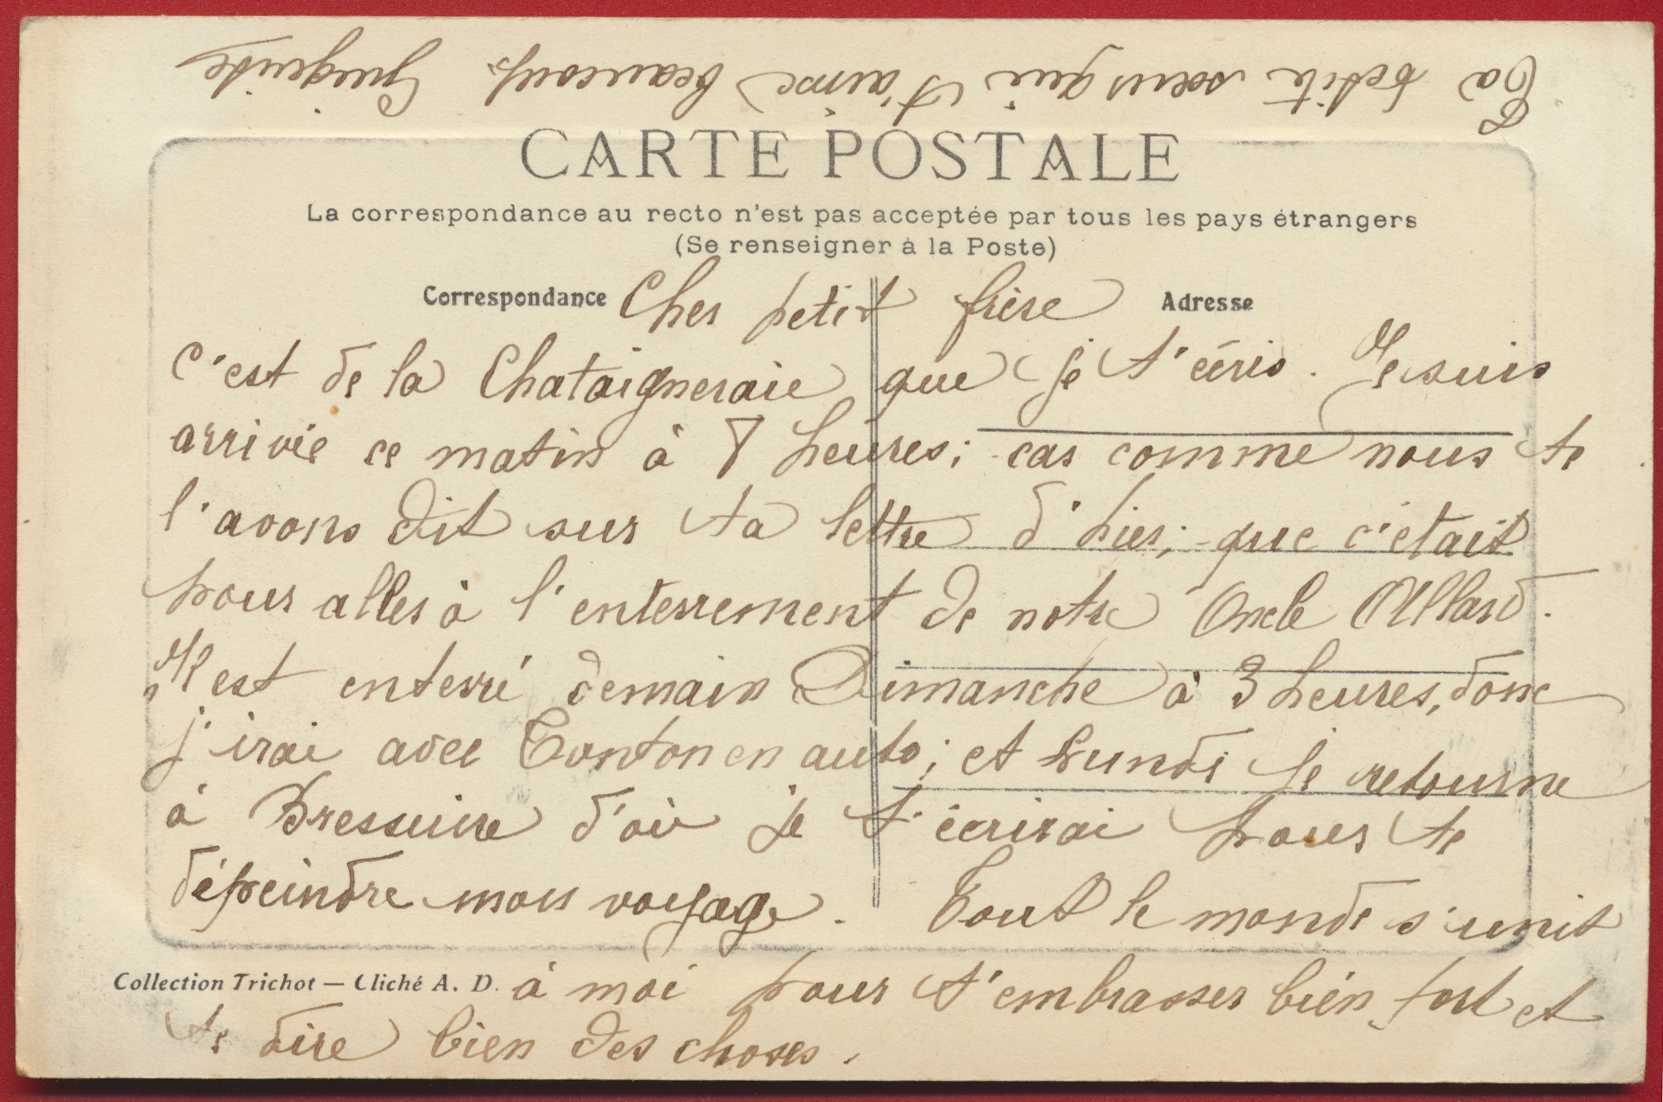 CARTE POSTALE
La correspondance au recto n'est pas acceptée par tous les pays étrangers
(Se renseigner à la Poste)
Correspondance
Adresse
Cher petit frère
c'est de la Chataigneraie que je t'écris. Je suis
arrivée ce matin à 8 heures; car comme nous te
l'avons dit sur ta lettre d'hier; que c'était
pour aller à l'enterrement de notre Oncle Allard.
Il est enterré demain Dimanche à 3 heures, donc
j'irai avec Tonton en auto; et Lundi je retourne
à Bressuire d'où je t'écrirai pour te
dépeindre mon voyage. Tout le monde s'unit
Collection Trichot — Cliché A. D.
à moi pour t'embrasser bien fort et
te dire bien des choses.
Ta petite sœur qui t'aime beaucoup.